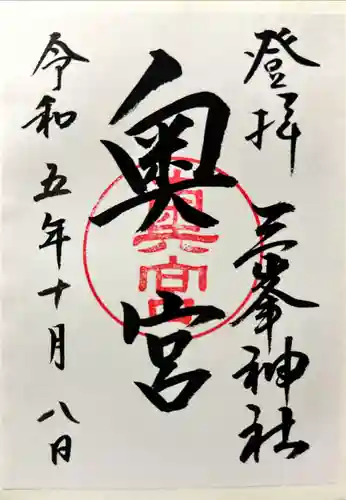 登拝
三峯神社
奥宮
奥宮
令和五年十月八日